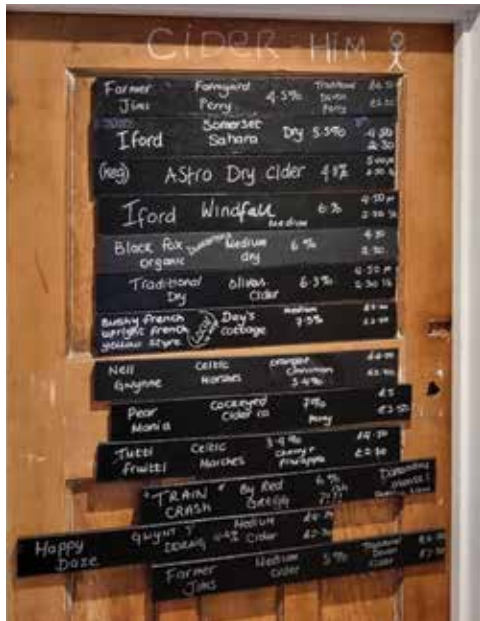 CIDER - HIM
Farmer Jims Farmyard Perry 4.5% Traditional Devon Perry
Iford Somerset Sahara Dry 5.5% 4.50
2.30
(Keg) Astro Dry Cider
Iford Windfall Medium 6%
Black Fox Organic Medium dry 6%
2.30
Traditional Dry Olivers Cider 6.3%
Bushy french upright french yellow styre Day's Cottage Medium 7.5%
Nell Gwynne Celtic Marches Cinnamon 3.4%
Pear Mania Cockeyed Cider co 7% Perry £5
£2.50
Tutti Fruitti Celtic Marches 3.4% Cherry + Pineapple
"TRAIN CRASH" By Red 6%
Happy Daze GWYNT Y DDRAIG Medium Cider
Farmer Jims Medium Cider 5% Traditional Devon Cider